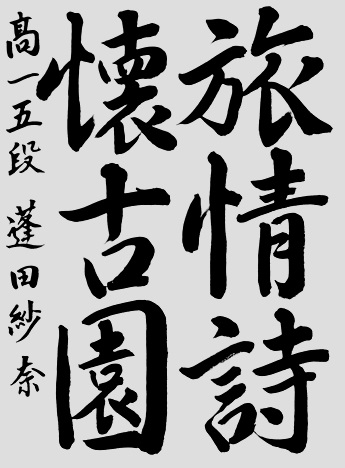 旅情詩
懐古園
高一五段 蓬田紗奈